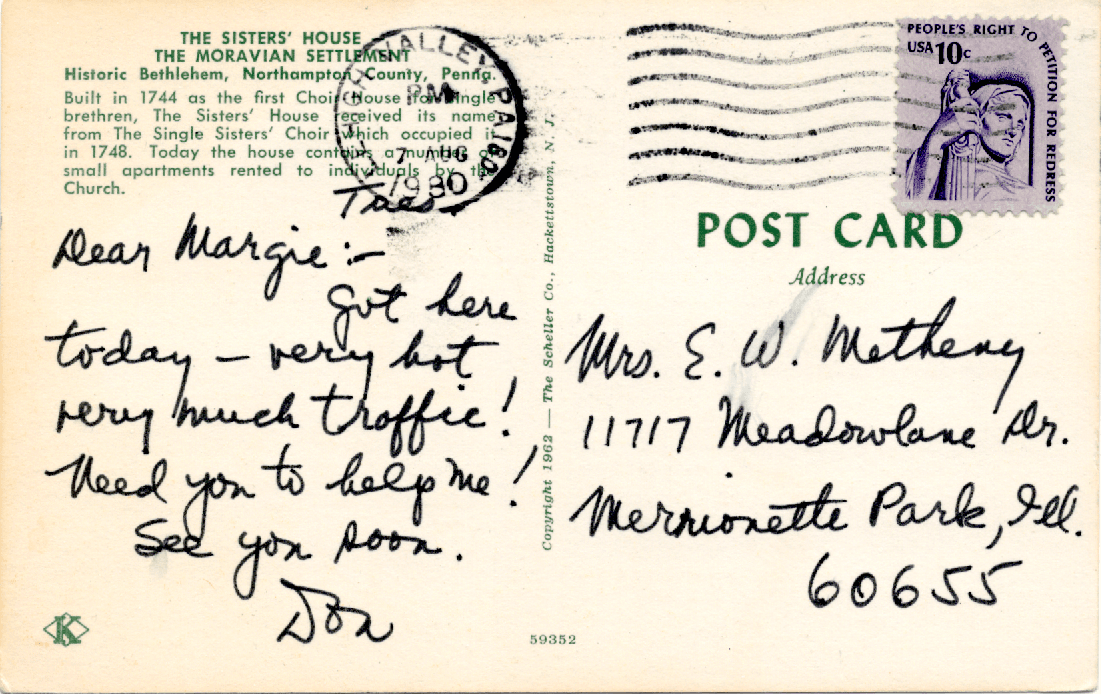 THE SISTERS' HOUSE
THE MORAVIAN SETTLEMENT
Historic Bethlehem, Northampton County, Penna.
Built in 1744 as the first Choir House for single
brethren, The Sisters' House received its name
from The Single Sisters' Choir which occupied it
in 1748. Today the house contains a number of
small apartments rented to individuals by the
Church.
LEHIGH VALLEY PA 180
PM
7 AUG
1980
PEOPLE'S RIGHT TO PETITION FOR REDRESS
USA 10c
Tues.
Dear Margie :-
Got here
today - very hot
very much traffic!
Need you to help me!
See you soon.
Don
Copyright 1962 — The Scheller Co., Hackettstown, N. J.
POST CARD
Address
Mrs. E. W. Metheny
11717 Meadowlane Dr.
Merrionette Park, Ill.
60655
K
59352